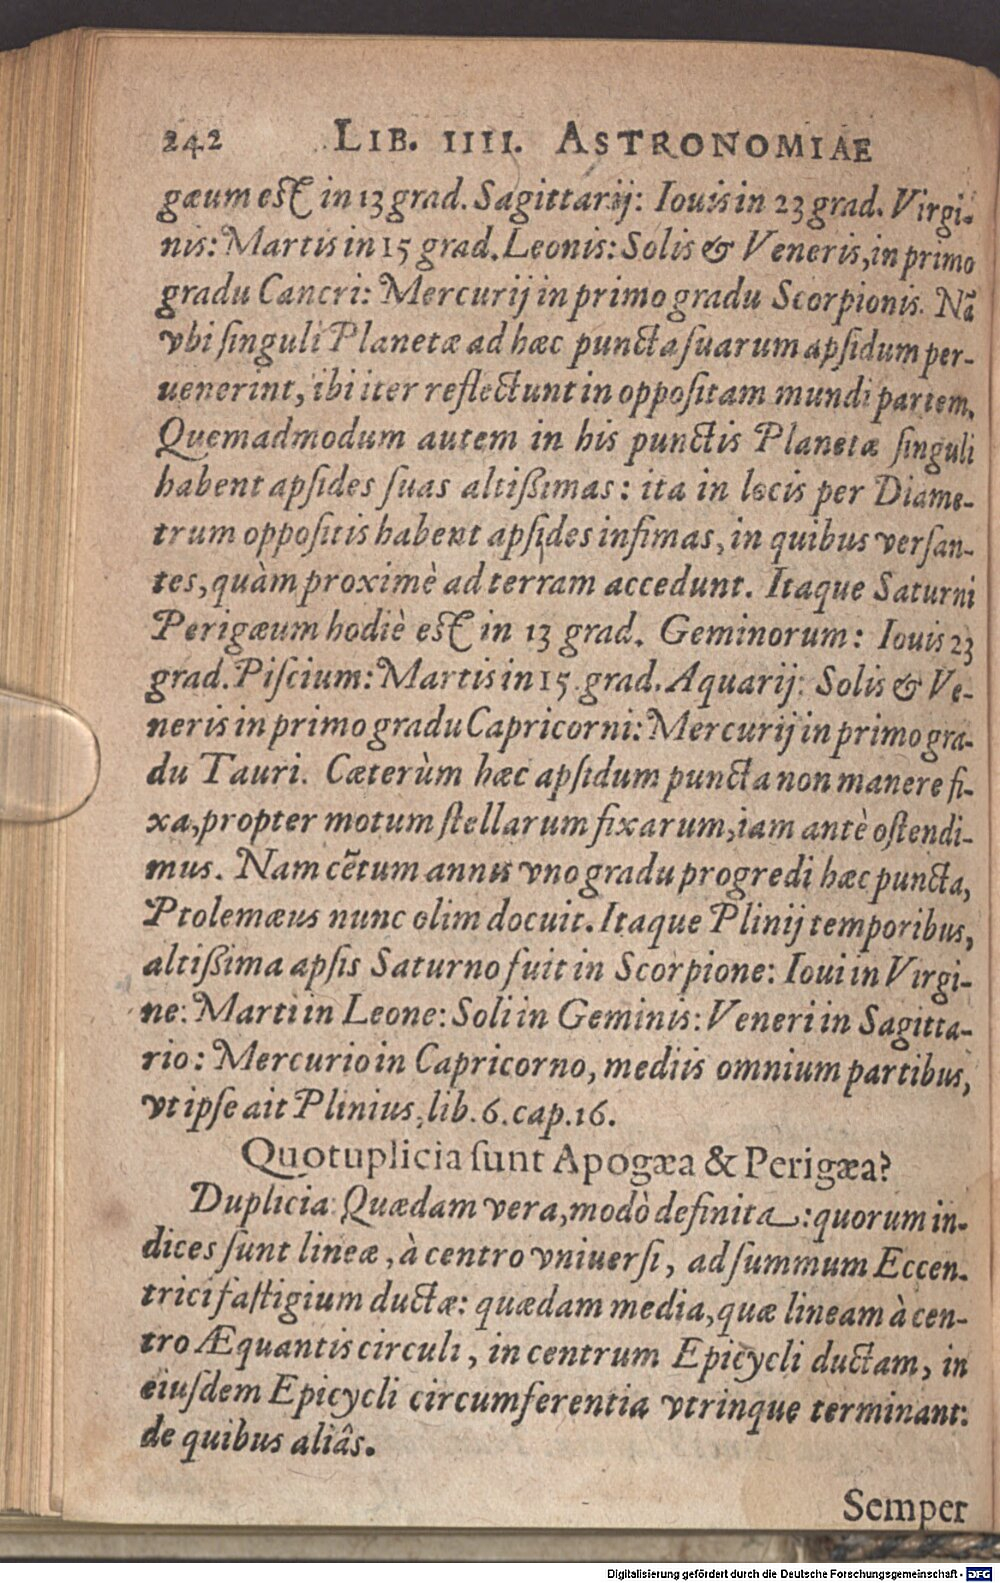 242 LIB. IIII. ASTRONOMIAE
gæum est in 13 grad. Sagittarij: Iouis in 23 grad. Virgi-
nis: Martis in 15 grad. Leonis: Solis & Veneris, in primo
gradu Cancri: Mercurij in primo gradu Scorpionis. Nā
vbi ſinguli Planetæ ad hæc puncta ſuarum apſidum per-
uenerint, ibi iter reflectunt in oppoſitam mundi partem.
Quemadmodum autem in his punctis Planetæ ſinguli
habent apſides ſuas altiſsimas: ita in locis per Diame-
trum oppoſitis habent apſides infimas, in quibus verſan-
tes, quàm proximè ad terram accedunt. Itaque Saturni
Perigæum hodiè est in 13 grad. Geminorum: Iouis 23
grad. Piſcium: Martis in 15 grad. Aquarij: Solis & Ve-
neris in primo gradu Capricorni: Mercurij in primo gra-
du Tauri. Cæterùm hæc apſidum puncta non manere fi-
xa, propter motum ſtellarum fixarum, iam antè oſtendi-
mus. Nam cētum annis vno gradu progredi hæc puncta,
Ptolemæus nunc olim docuit. Itaque Plinij temporibus,
altiſsima apſis Saturno fuit in Scorpione: Ioui in Virgi-
ne: Marti in Leone: Soli in Geminis: Veneri in Sagitta-
rio: Mercurio in Capricorno, mediis omnium partibus,
vt ipſe ait Plinius, lib. 6. cap. 16.
Quotuplicia ſunt Apogæa & Perigæa?
Duplicia: Quædam vera, modò definita: quorum in-
dices ſunt lineæ, à centro vniuerſi, ad ſummum Eccen-
trici faſtigium ductæ: quædam media, quæ lineam à cen-
tro Æquantis circuli, in centrum Epicycli ductam, in
eiuſdem Epicycli circumferentia vtrinque terminant:
de quibus aliâs.
Semper
Digitalisierung gefördert durch die Deutsche Forschungsgemeinschaft - DFG